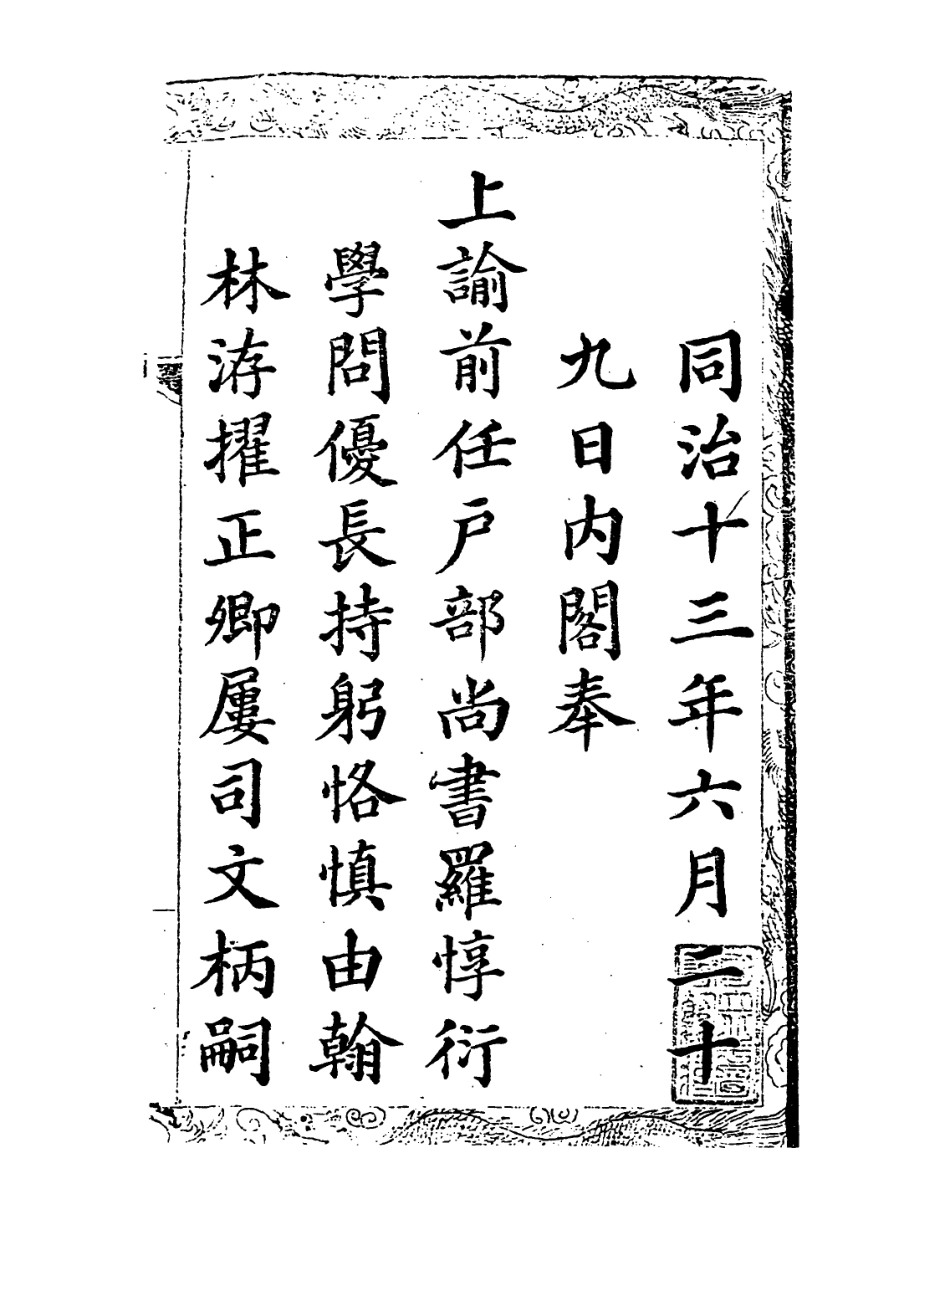 同治十三年六月二十
九日内閣奉
上諭前任戸部尚書羅惇衍
學問優長持躬恪慎由翰
林洊擢正卿屢司文柄嗣